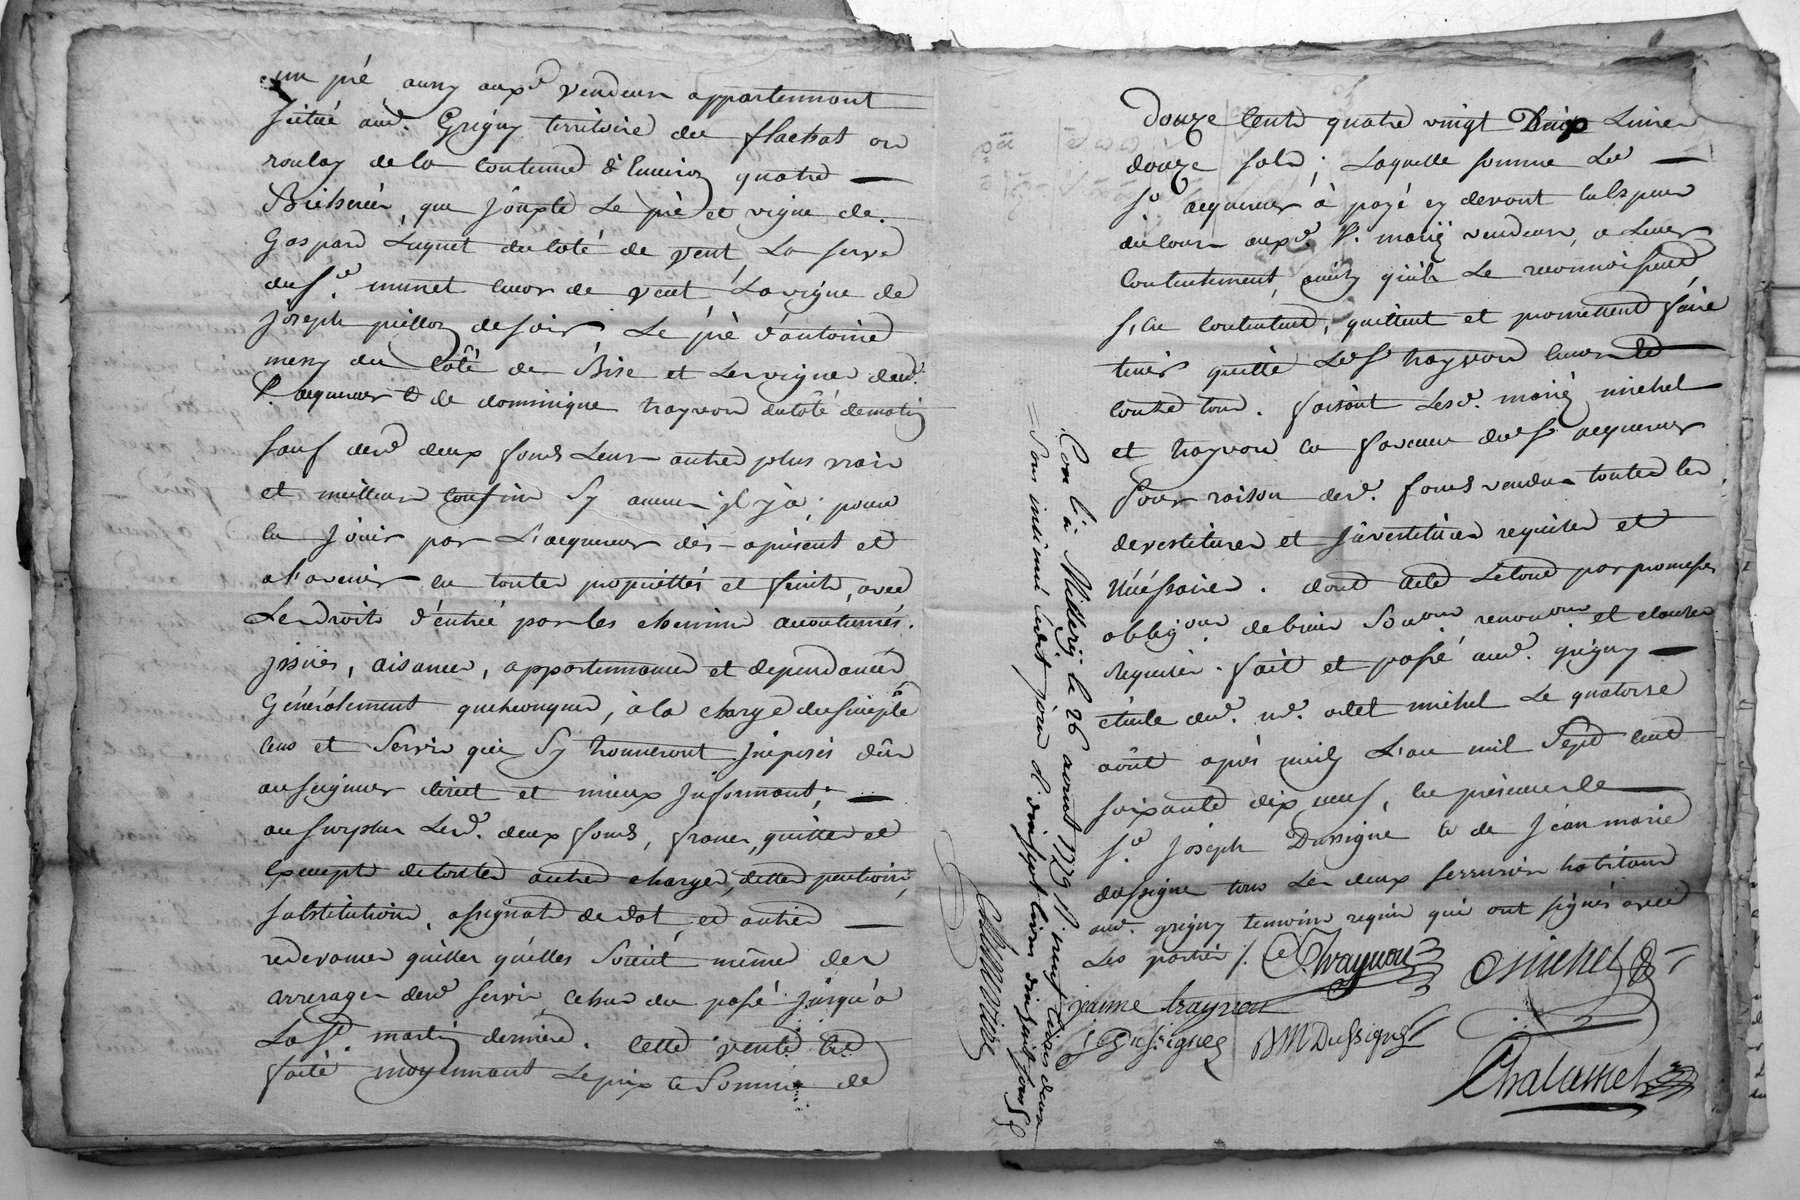 un pré aussy auxd. vendeurs appartennant
situé aud. Grigny territoire du flachat ou
roulay de la contenue d'environ quatre
Bicherées, que jouxte Le pré et vigne de
Gaspard Luquet du coté de vent La serve
du Sr. munet encor de vent, La vigne de
joseph pillon de soir, Le pré d'antoine
messy du Côté de Bise et Les vignes dud.
acquereur & de dominique trayvou du côté de matin
sauf desd. deux fonds Leurs autres plus vrais
et meilleurs confins Sy aucun il y à; pour
en Jouir par L'acquereur dès-apresent et
a l'avenir en toutes propriettés et fruits, avec
Les droits d'entrée par les chemins accoutumés.
jssües, aisances, appartennances et dependances
Généralement quelconques, à la charge du simple
cens et Servis qui Sy trouveront jmposés dûs
au seigneur direct et mieux jnformant;
au surplus Lesd. deux fonds, francs, quittes et
Exempts de toutes autres charges, dettes pentions,
substitutions, assignats de dot, et autres
redevances quelles qu'elles Soient, même des
arrerages desd. servis, echus du passé jusqu'a
La St. martin derniere. Cette vente Est
faite moyennant Le prix & Somme de
Douze Cents quatre vingt Livres
douze sols; Laquelle somme Led.
Sr. acquereur à payé cy devant en Especes
du cours auxd. Sr. mariés vendeurs, a Leur
contentement, ainsy qu'ils Le reconnoissent
s'en contentent, quittent et promettent faire
tenir quitte Led. Sr. trayvou envers &
contre tous. faisant Lesd. mariés michel
et trayvou en faveur dud. Sr. acquereur
pour raison desd. fonds vendus toutes les
devestitures et jnvestitures requises et
Nécéssaires. dont acte Le tout par promesses
obligons. de biens Soumons renonons. et clauses
requises. fait et passé aud. grigny
étude dud. ne. odet michel Le quatorze
août après midy L'an mil Sept cent
soixante dix neuf, en présence de
Sr. joseph Dussigne & de jean marie
dussigne tous Les deux serruriers habitans
aud. grigny temoins requis qui ont signés avec
Les parties /.
Trayvou
Omichel
jeanne trayvou
J Dussigne
JM Dussigne
Chalamel
Con lé à Millery le 26 aoust 1779 Rt. neuf Livres deux
Sous insinué ledit jour R. dix sept Livres dix huit sous